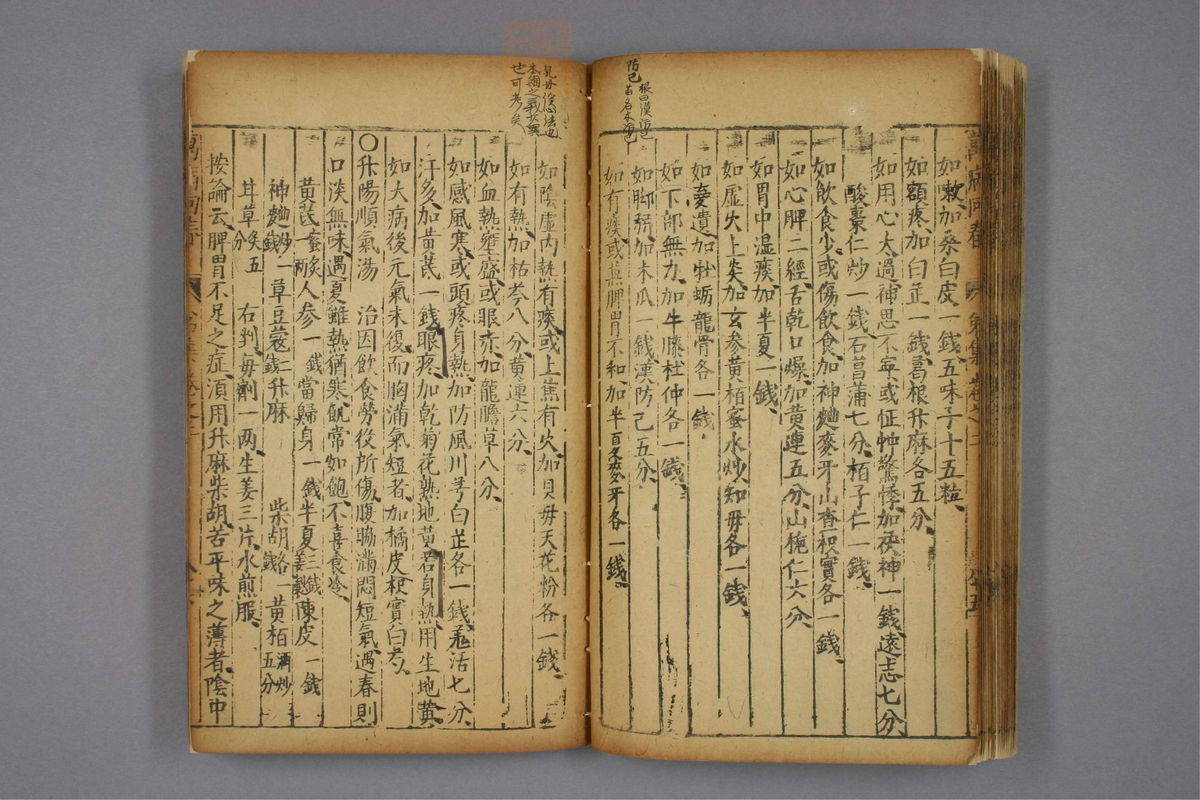 如嗽加桑白皮一錢五味子十五粒
如額疼加白芷一錢葛根升麻各五分
如用心太過神思不寧或怔忡驚悸加茯神一錢遠志七分
酸棗仁炒一錢石菖蒲七分柏子仁一錢
如飲食少或傷飲食加神麯麥牙山查枳實各一錢
如心脾二經舌乾口燥加黃連五分山梔仁六分
如胃中湿痰加半夏一錢
如虛火上炎加玄参黃栢蜜水炒知母各一錢
如遺加牡蛎龍骨各一錢
如下部無力加牛膝杜仲各一錢
如脚弱加木瓜一錢漢防己五分
如有痰或兼脾胃不和加半夏麥牙各一錢
防己
如陰虛內熱有痰或上焦有火加貝母天花粉各一錢
如有熱加枯芩八分黃連六分
如血熱壅盛或眼赤加龍膽草八分
如感風寒或頭疼身熱加防風川芎白芷各一錢羌活七分
汗多加黃芪一錢眼疼加乾菊花熟地黃若身熱用生地黃
如大病後元氣未復而胸滿氣短者加橘皮枳實白芍
〇升陽順氣湯 治因飲食勞役所傷腹脇滿悶短氣遇春則
口淡無味遇夏雖熱猶寒飢常如飽不喜食冷
黃芪蜜炙一兩人参一錢當歸身一錢半夏三錢薑製陳皮一錢
神麯炒一錢草豆蔻一錢升麻柴胡各一錢黃栢酒炒五分
甘草炙五分 右剉每劑一两生姜三片水煎服
按論云脾胃不足之症須用升麻柴胡苦平味之薄者陰中
也可考矣